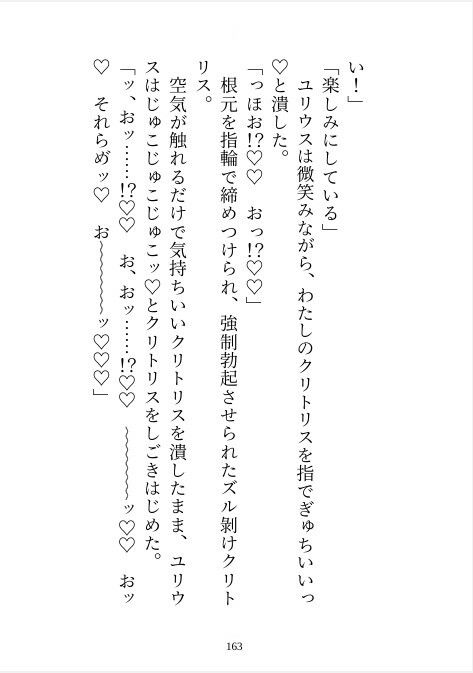 い！」
「楽しみにしている」
　ユリウスは微笑みながら、わたしのクリトリスを指でぎゅちいいっ
♡と潰した。
「っほお!?♡♡　おっ!?♡♡」
　根元を指輪で締めつけられ、強制勃起させられたズル剝けクリト
リス。
　空気が触れるだけで気持ちいいクリトリスを潰したまま、ユリウ
スはじゅこじゅこじゅこッ♡とクリトリスをしごきはじめた。
「ッ、おッ……!?♡♡　お、おッ……!?♡♡　〜〜〜〜〜ッ♡♡　おッ
♡　それらめ゙ッ♡　お〜〜〜〜〜ッ♡♡♡」
163